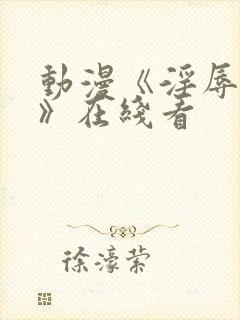 動漫《淫辱
》在线看
徐濠萦